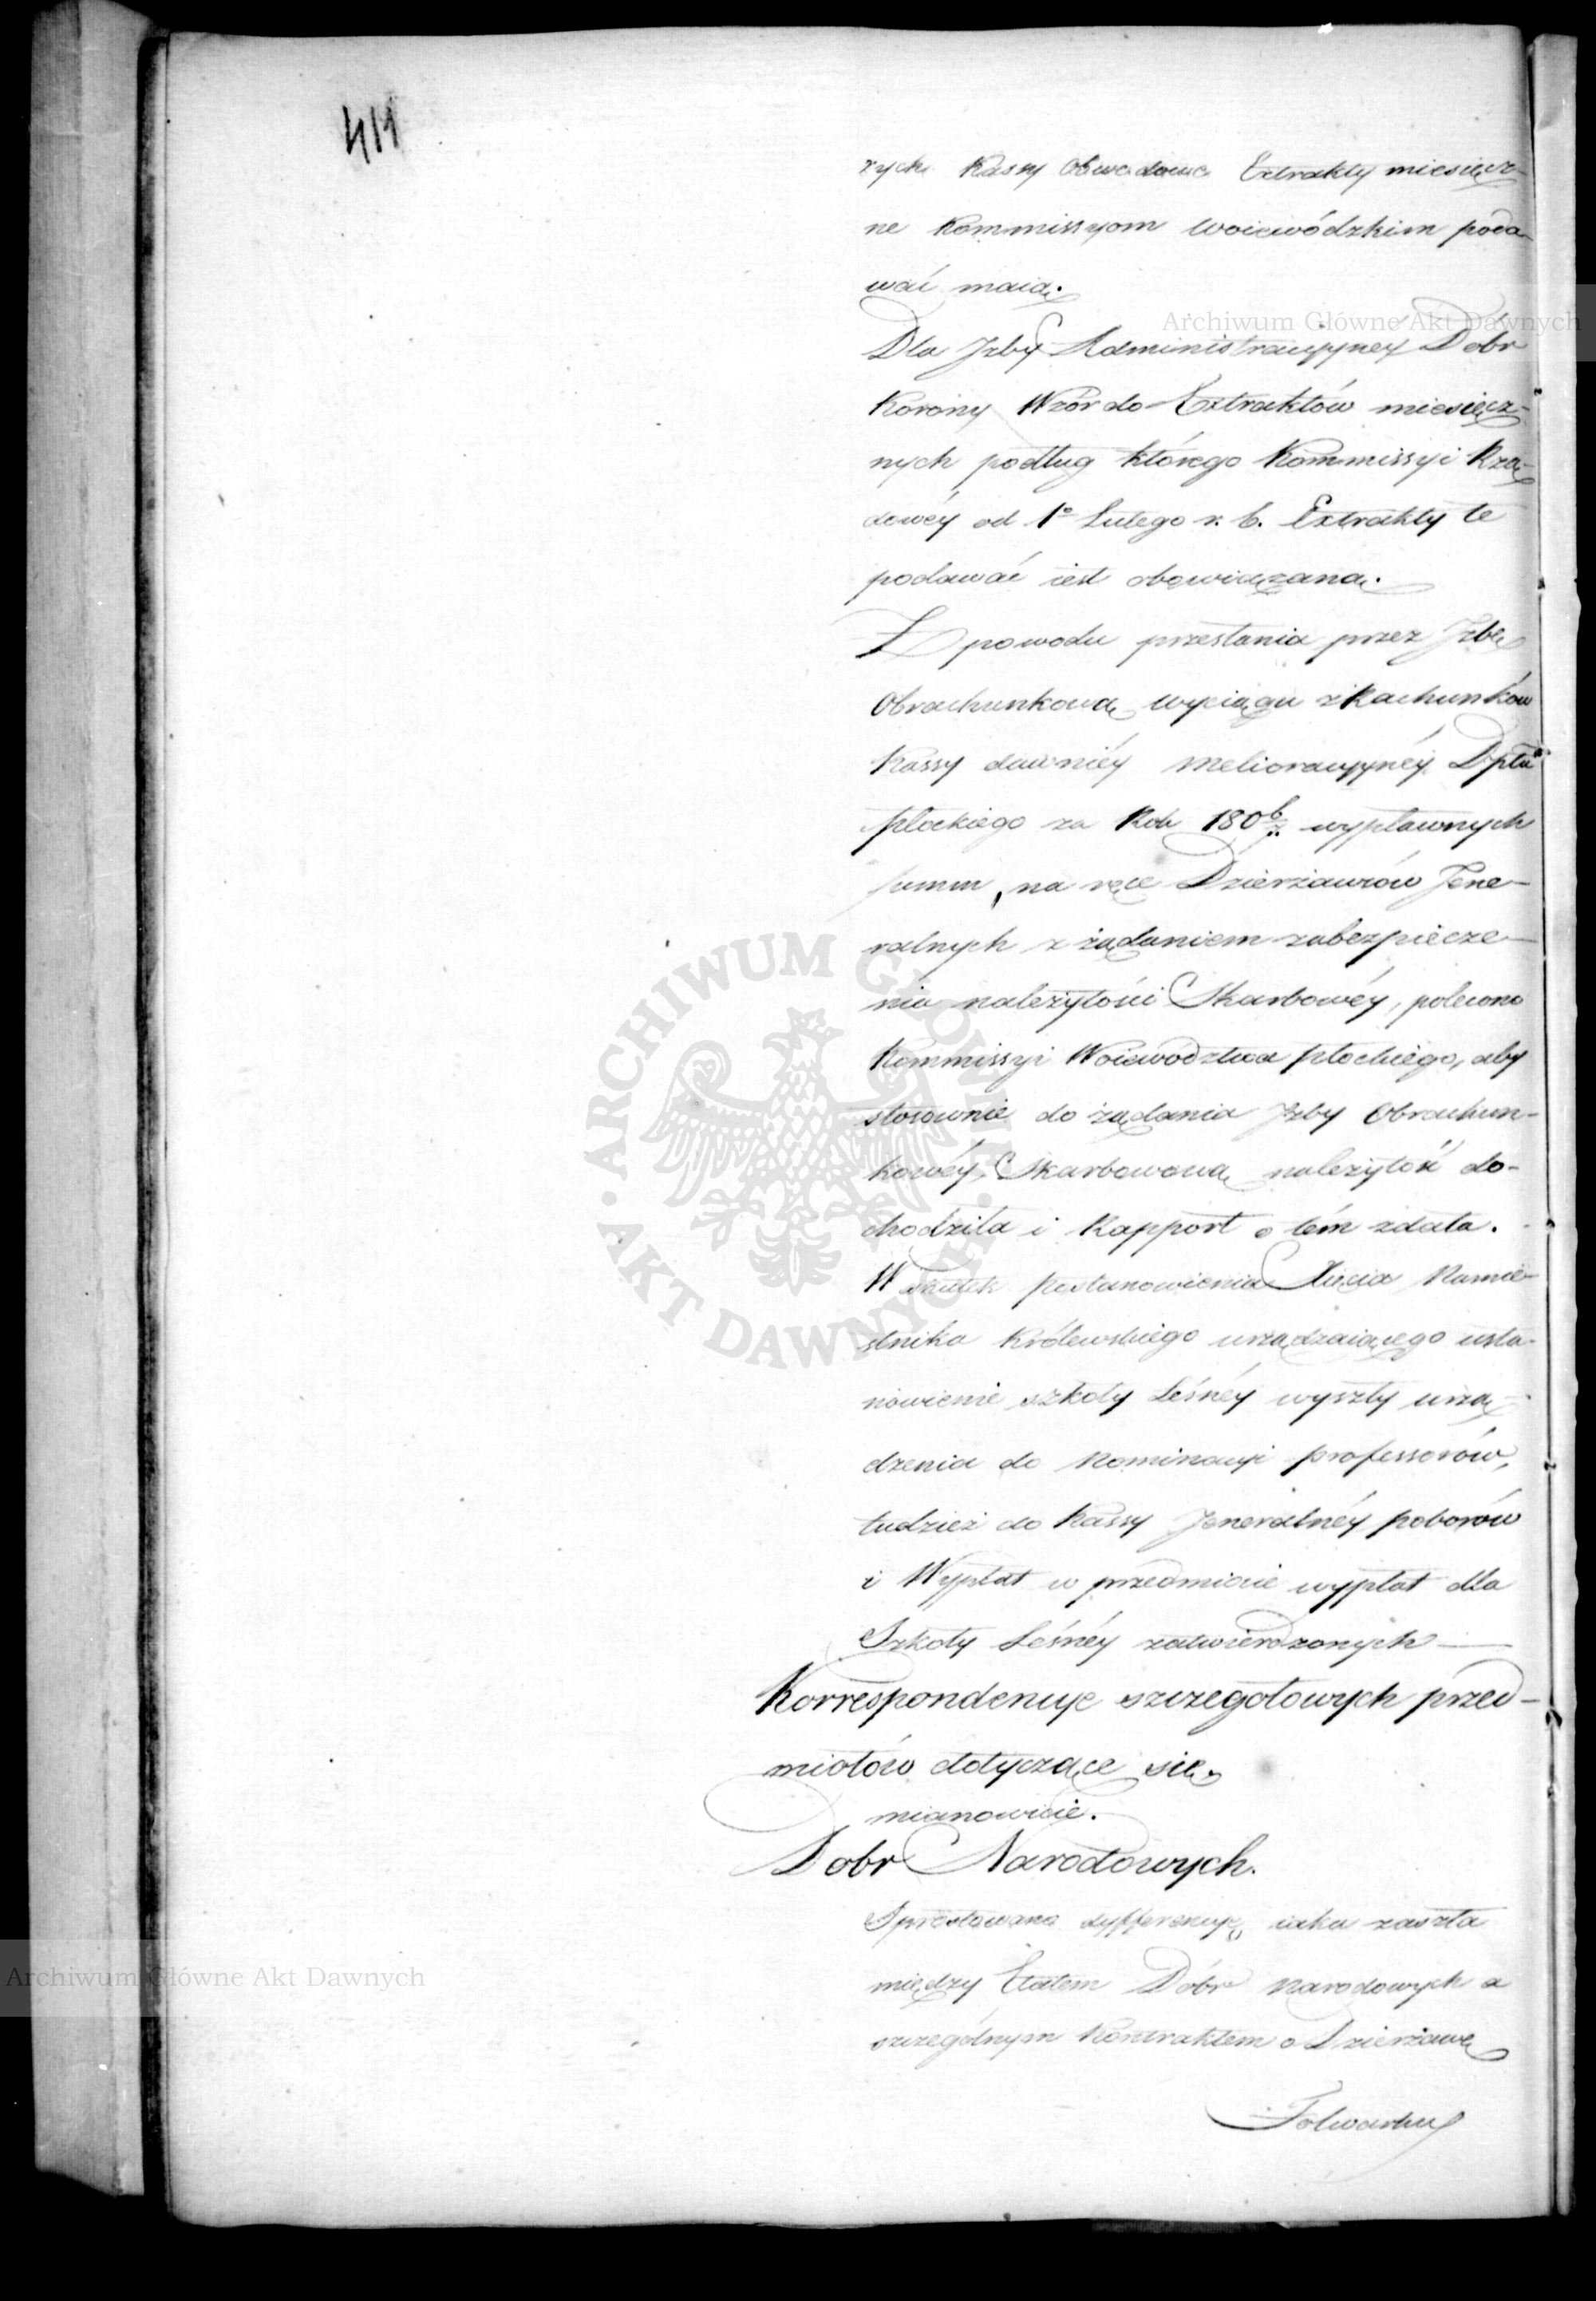 411
rych Kassy Obwodowe Extrakty miesięcz-
ne Kommissyom Woiewódzkim poda-
wać maią.
Dla Jzby Administracyyney Dóbr
Korony Wzór do Extraktów miesięcz-
nych podług którego Kommissyi Rzą-
dowéy od 1o Lutego r. b. Extrakty te
podawać iest obowiązana.
Z powodu przesłania przez Jzbę
Obrachunkową wyciągu z Rachunków
Kassy dawniéy melioracyynéy Dptu
płockiego za Rok 1806/7 wypłaconych
summ, na ręce Dzierżawców Jene-
ralnych z żądaniem zabezpiecze-
nia należytości Skarbowéy, polecono
Kommissyi Woiewództwa płockiego, aby
stosownie do żądania Jzby Obrachun-
kowéy, Skarbowową należytość do-
chodziła i Rapport o tém zdała.
W skutek postanowienia Xięcia Namie-
stnika Królewskiego urządzaiącego usta-
nowienie szkoły Leśnéy wyszły urzą-
dzenia do Nominacyi professorów,
tudzież do Kassy Jeneralnéy poborów
i Wypłat w przedmiocie wypłat dla
Szkoły Leśnéy zatwierdzonych
Korrespondencye szczegołowych przed-
miotów dotyczące się.
mianowicie.
Dobr Narodowych.
Sprostowano dyfferencyę iaka zaszła
między Etatem Dóbr Narodowych a
szczególnym Kontraktem o Dzierżawę
Folwarku
Archiwum Główne Akt Dawnych
ARCHIWUM GŁÓWNE AKT DAWNYCH
Archiwum Główne Akt Dawnych